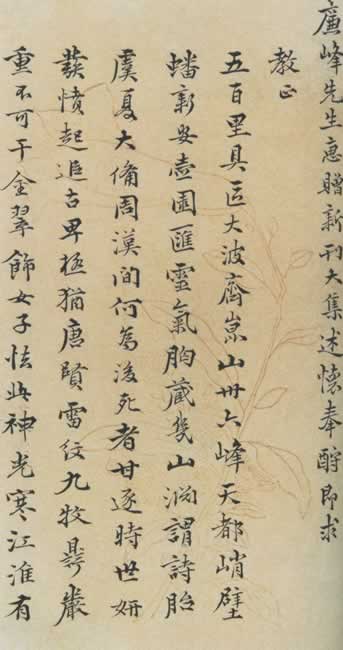 廉峰先生惠贈新刊大集述懷奉酧即求
教正
五百里具區大波山卅六峰天都峭壁
蟠新安壺園匯靈氣胸藏幾山謂詩胎
虞夏大備周漢間何為後死者甘逐時世妍
發憤起追古卑極猶唐賢雷紋九牧鼎嚴
重不可干金翠飾女子怯此神光寒江淮有